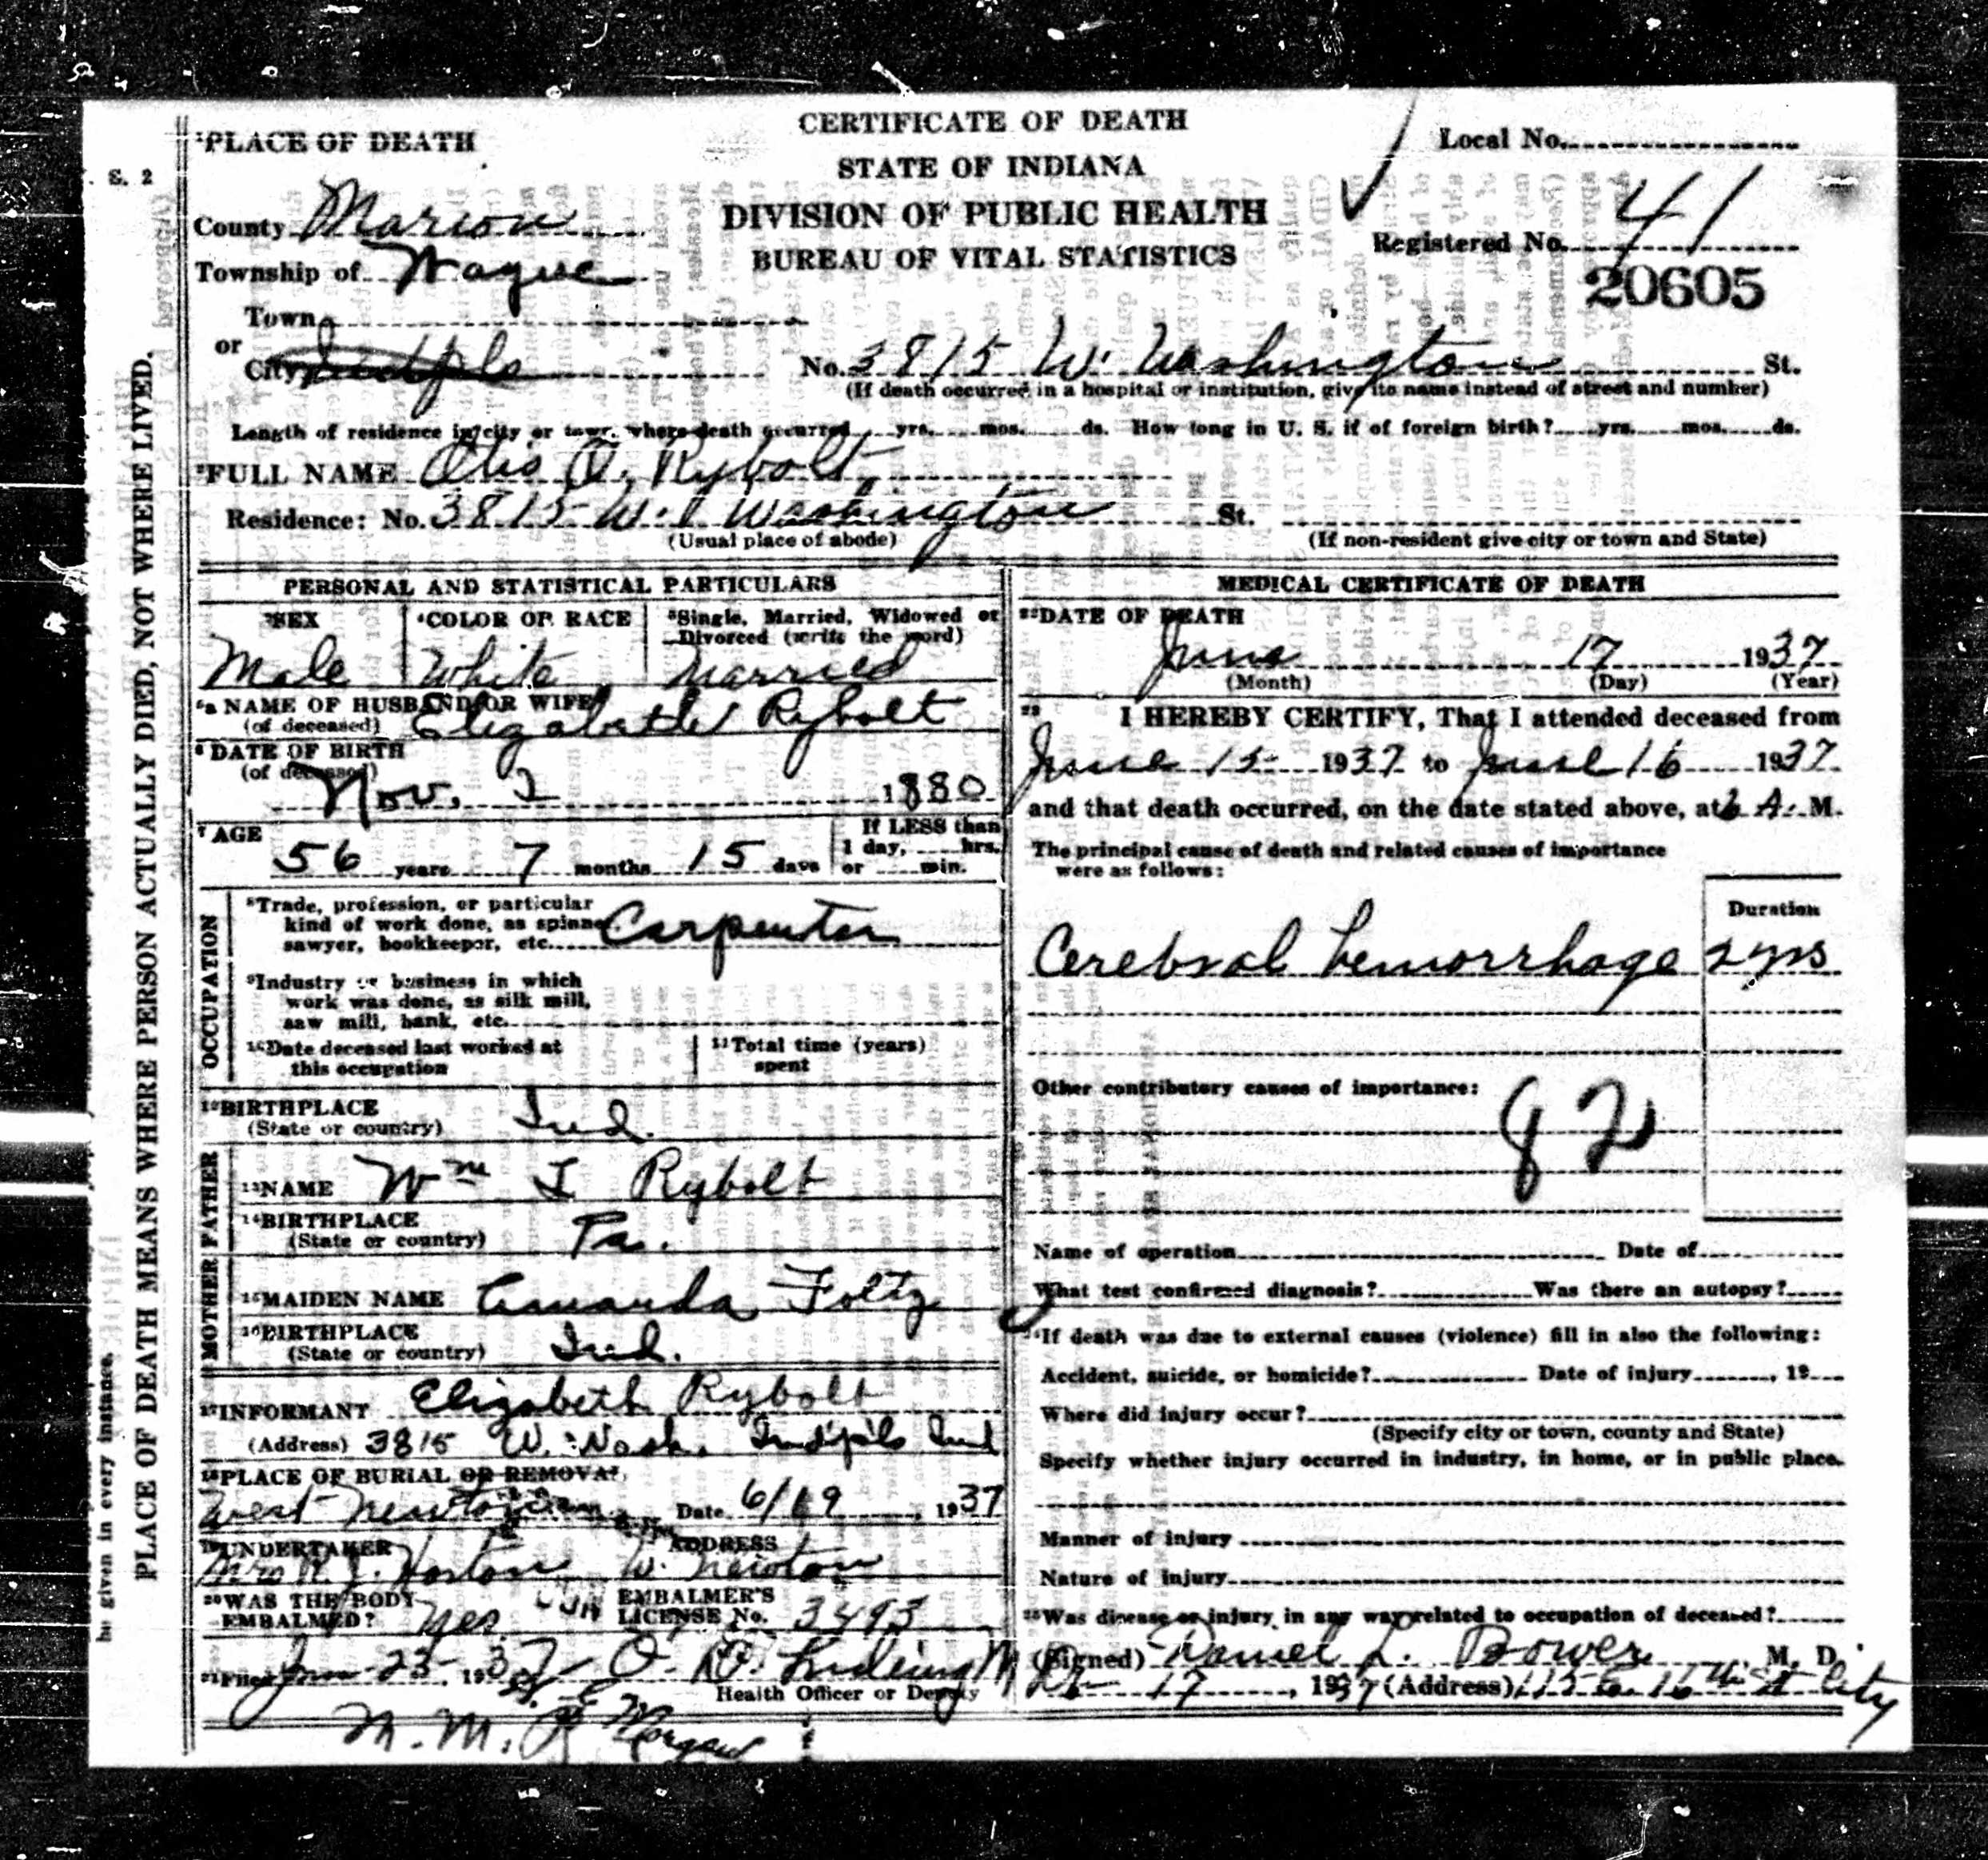 S. 2
PLACE OF DEATH MEANS WHERE PERSON ACTUALLY DIED, NOT WHERE LIVED.
be given in every instance.
CERTIFICATE OF DEATH
STATE OF INDIANA
DIVISION OF PUBLIC HEALTH
BUREAU OF VITAL STATISTICS
Local No.
Registered No. 41
20605
1 PLACE OF DEATH
County Marion
Township of Wayne
Town
or
City Indpls No. 3815 W. Washington St.
(If death occurred in a hospital or institution, give its name instead of street and number)
Length of residence in city or town where death occurred yrs. mos. ds. How long in U. S. if of foreign birth? yrs. mos. ds.
2 FULL NAME Otis O. Rybolt
Residence: No. 3815 W. Washington St.
(Usual place of abode) (If non-resident give city or town and State)
PERSONAL AND STATISTICAL PARTICULARS
3 SEX 4 COLOR OR RACE 5 Single, Married, Widowed or
Divorced (write the word)
Male White Married
5a NAME OF HUSBAND OR WIFE
(of deceased) Elizabeth Rybolt
6 DATE OF BIRTH
(of deceased)
Nov. 2 1880
7 AGE If LESS than
56 years 7 months 15 days 1 day, hrs.
or min.
OCCUPATION
8 Trade, profession, or particular
kind of work done, as spinner,
sawyer, bookkeeper, etc. Carpenter
9 Industry or business in which
work was done, as silk mill,
saw mill, bank, etc.
10 Date deceased last worked at
this occupation
11 Total time (years)
spent
12 BIRTHPLACE
(State or country) Ind.
FATHER
13 NAME Wm I Rybolt
14 BIRTHPLACE
(State or country) Pa.
MOTHER
15 MAIDEN NAME Amanda Foltz
16 BIRTHPLACE
(State or country) Ind.
17 INFORMANT Elizabeth Rybolt
(Address) 3815 W. Wash. Ind'pls Ind
18 PLACE OF BURIAL OR REMOVAL
West Newton Date 6/19, 1937
19 UNDERTAKER ADDRESS
Mrs Horton W. Newton
20 WAS THE BODY
EMBALMED? Yes
EMBALMER'S
LICENSE No. 3495
21 Filed Jun 25, 1937
Health Officer or Deputy
M. M. Morgan
MEDICAL CERTIFICATE OF DEATH
22 DATE OF DEATH
June 17 1937
(Month) (Day) (Year)
23 I HEREBY CERTIFY, That I attended deceased from
June 15 1937 to June 16 1937
and that death occurred, on the date stated above, at 6 A. M.
The principal cause of death and related causes of importance
were as follows:
Duration
Cerebral hemorrhage 2 yrs
Other contributory causes of importance:
82
Name of operation Date of
What test confirmed diagnosis? Was there an autopsy?
24 If death was due to external causes (violence) fill in also the following:
Accident, suicide, or homicide? Date of injury, 19
Where did injury occur?
(Specify city or town, county and State)
Specify whether injury occurred in industry, in home, or in public place.
Manner of injury
Nature of injury
25 Was disease or injury in any way related to occupation of deceased?
(Signed) Daniel L. Bower, M. D.
17, 1937 (Address) 1115 E. 16th St City